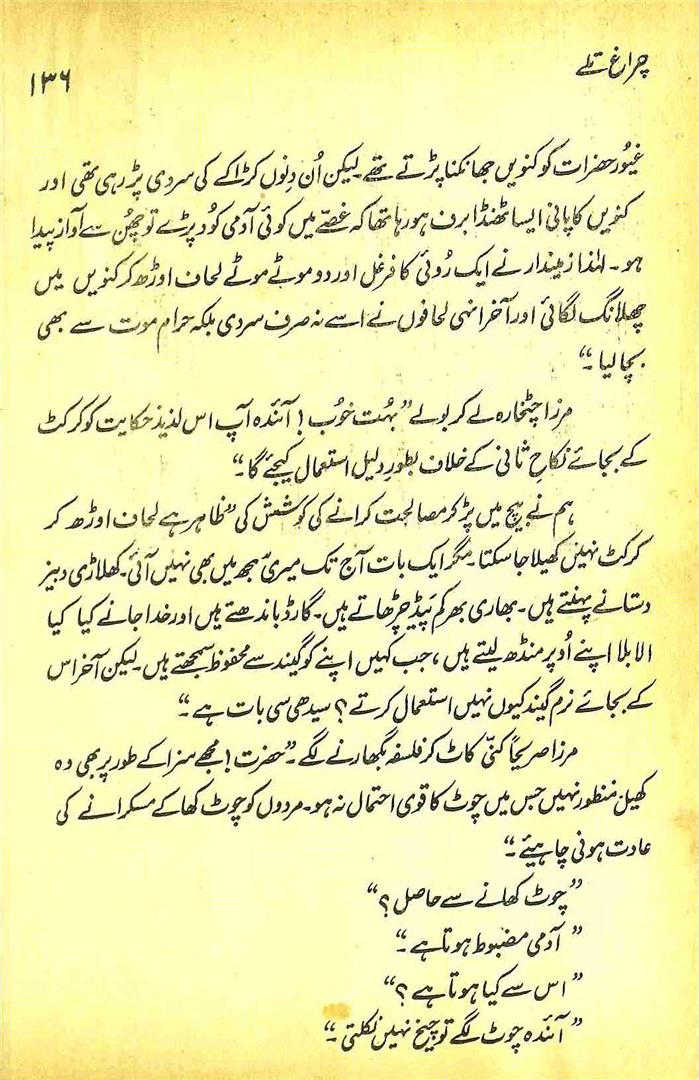 چراغ تلے
۱۳۶
غیُور حضرات کو کنویں جھانکنا پڑتے تھے۔ لیکن اُن دِنوں کڑاکے کی سردی پڑ رہی تھی اور
کنویں کا پانی ایسا ٹھنڈا برف ہو رہا تھا کہ غصّے میں کوئی آدمی کُود پڑے تو چَھن سے آواز پیدا
ہو۔ لہٰذا زمیندار نے ایک رُوئی کا فرغل اور دو موٹے موٹے لحاف اوڑھ کر کنویں میں
چھلانگ لگائی اور آخر انہی لحافوں نے اسے نہ صرف سردی بلکہ حرام موت سے بھی
بچا لیا۔“
مرزا چٹخارہ لے کر بولے ”بہُت خوُب! آئندہ آپ اس لذیذ حکایت کو کرکٹ
کے بجائے نکاحِ ثانی کے خلاف بطورِ دلیل استعمال کیجئے گا۔“
ہم نے بیچ میں پڑ کر مصالحت کرانے کی کوشش کی ”ظاہر ہے لحاف اوڑھ کر
کرکٹ نہیں کھیلا جا سکتا۔ مگر ایک بات آج تک میری سمجھ میں بھی نہیں آئی۔ کھلاڑی دبیز
دستانے پہنتے ہیں۔ بھاری بھرکم پَیڈ چڑھاتے ہیں۔ گارڈ باندھتے ہیں اور خدا جانے کیا کیا
الا بلا اپنے اُوپر منڈھ لیتے ہیں، جب کہیں اپنے کو گیند سے محفوظ سمجھتے ہیں۔ لیکن آخر اس
کے بجائے نرم گیند کیوں نہیں استعمال کرتے؟ سیدھی سی بات ہے۔“
مرزا صریحاً کنّی کاٹ کر فلسفہ بگھارنے لگے۔ ”حضرت! مجھے سزا کے طور پر بھی وہ
کھیل منظور نہیں جس میں چوٹ کا قوی احتمال نہ ہو۔ مردوں کو چوٹ کھا کے مسکرانے کی
عادت ہونی چاہیئے۔“
”چوٹ کھانے سے حاصل؟“
”آدمی مضبوط ہوتا ہے۔“
”اس سے کیا ہوتا ہے؟“
”آئندہ چوٹ لگے تو چیخ نہیں نکلتی۔“